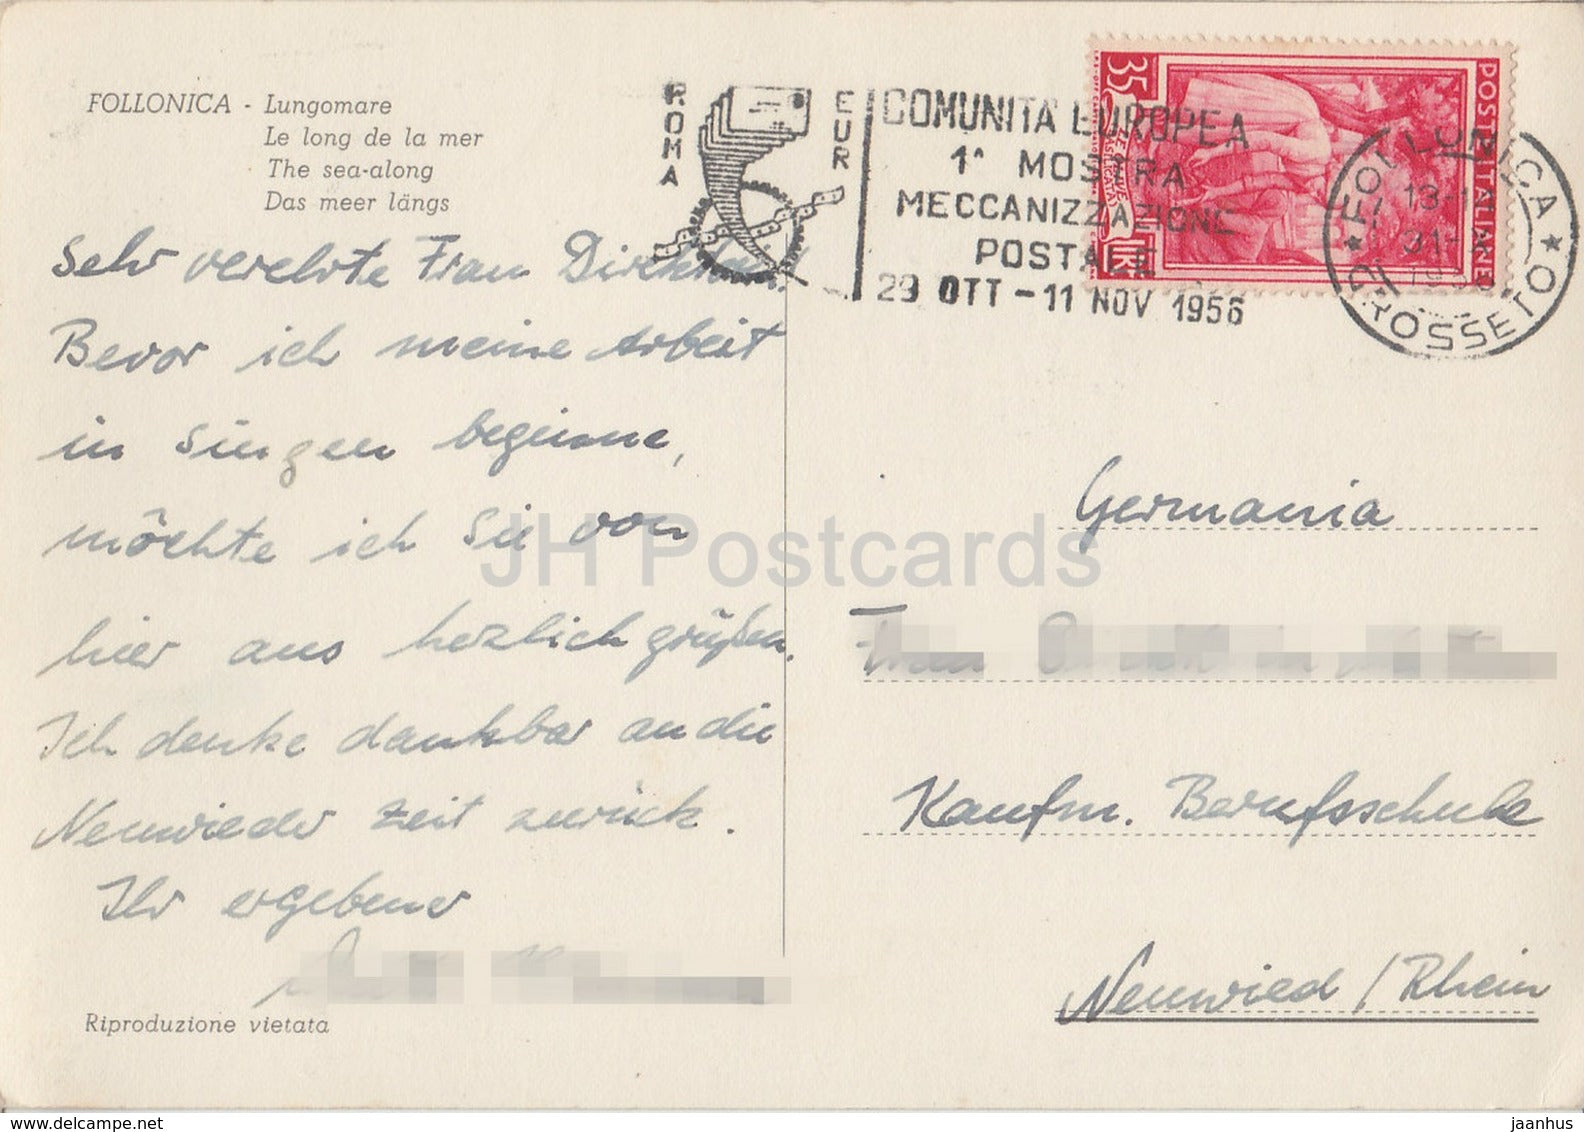 FOLLONICA - Lungomare
Le long de la mer
The sea-along
Das meer längs
Sehr verehrte Frau Direktor!
Bevor ich meine Arbeit
in Singen beginne,
möchte ich Sie von
hier aus herzlich grüßen.
Ich denke dankbar an die
Neuwieder Zeit zurück.
Ihr ergebener
Riproduzione vietata
ROMA
EUR
COMUNITA EUROPEA
1ª MOSTRA
MECCANIZZAZIONE
POSTALE
29 OTT - 11 NOV 1956
35
LIRE
POSTE ITALIANE
FOLLONICA
13-14
31-
GROSSETO
Germania
Frau
Kaufm. Berufsschule
Neuwied / Rhein
JH Postcards
www.delcampe.net
jaanhus